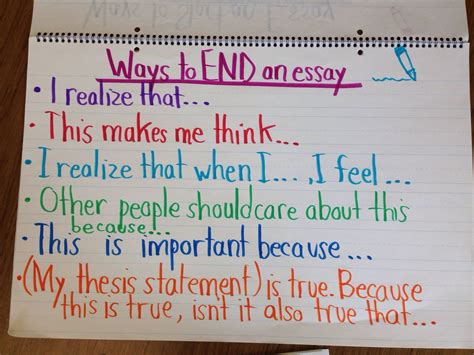 Ways to Start an Essay
Ways to END an essay
• I realize that...
• This makes me think...
• I realize that when I..., I feel...
• Other people should care about this
because...
• This is important because...
• (My thesis statement) is true. Because
this is true, isnt it also true that...